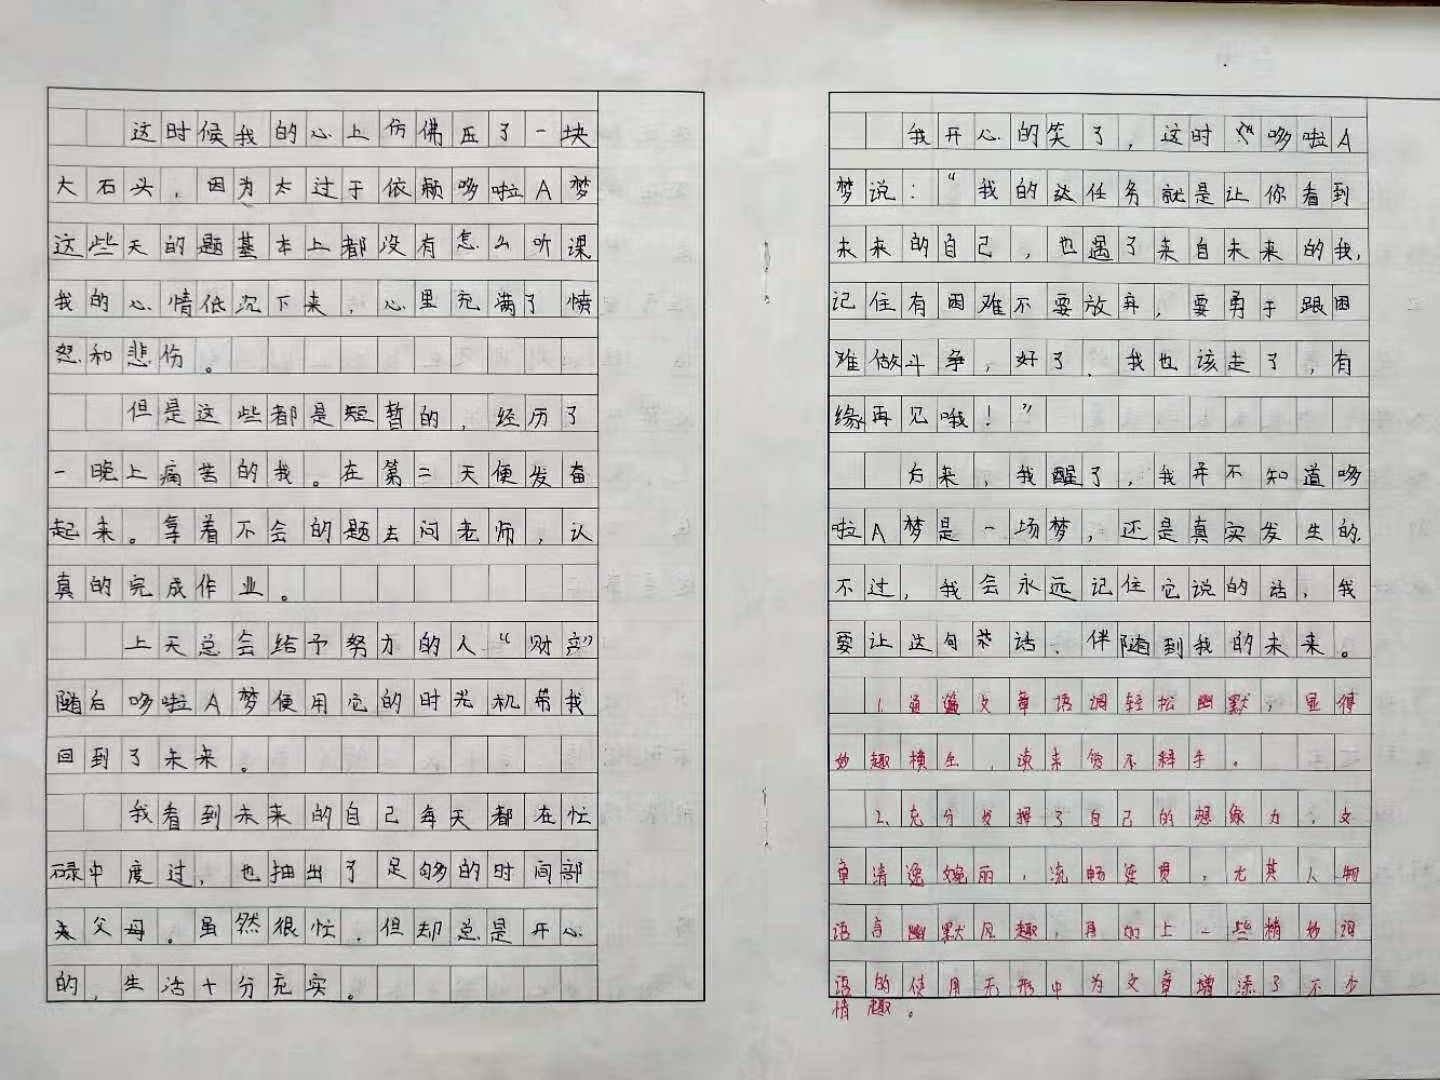 这时候我的心上仿佛压了一块
大石头，因为太过于依赖哆啦A梦
这些天的题基本上都没有怎么听课
我的心情低沉下来，心里充满了愤
怒和悲伤。
但是这些都是短暂的，经历了
一晚上痛苦的我。在第二天便发奋
起来。拿着不会的题去问老师，认
真的完成作业。
上天总会给予努力的人“财宝”
随后哆啦A梦便用它的时光机带我
回到了未来。
我看到未来的自己每天都在忙
碌中度过，也抽出了足够的时间部
父母。虽然很忙，但却总是开心
的，生活十分充实。
我开心的笑了，这时哆啦A
梦说：“我的任务就是让你看到
未来的自己，也遇了来自未来的我，
记住有困难不要放弃，要勇于跟困
难做斗争，好了、我也该走了，有
缘再见哦！”
后来，我醒了，我并不知道哆
啦A梦是一场梦，还是真实发生的
不过，我会永远记住它说的话，我
要让这句话、伴随到我的未来。
1.通篇文章语调轻松幽默，显得
妙趣横生，读来爱不释手。
2.充分发挥了自己的想象力，文
章清逸婉丽，流畅连贯，尤其人物
语言幽默风趣，再加上一些精妙词
语的使用无形中为文章增添了不少
情趣。